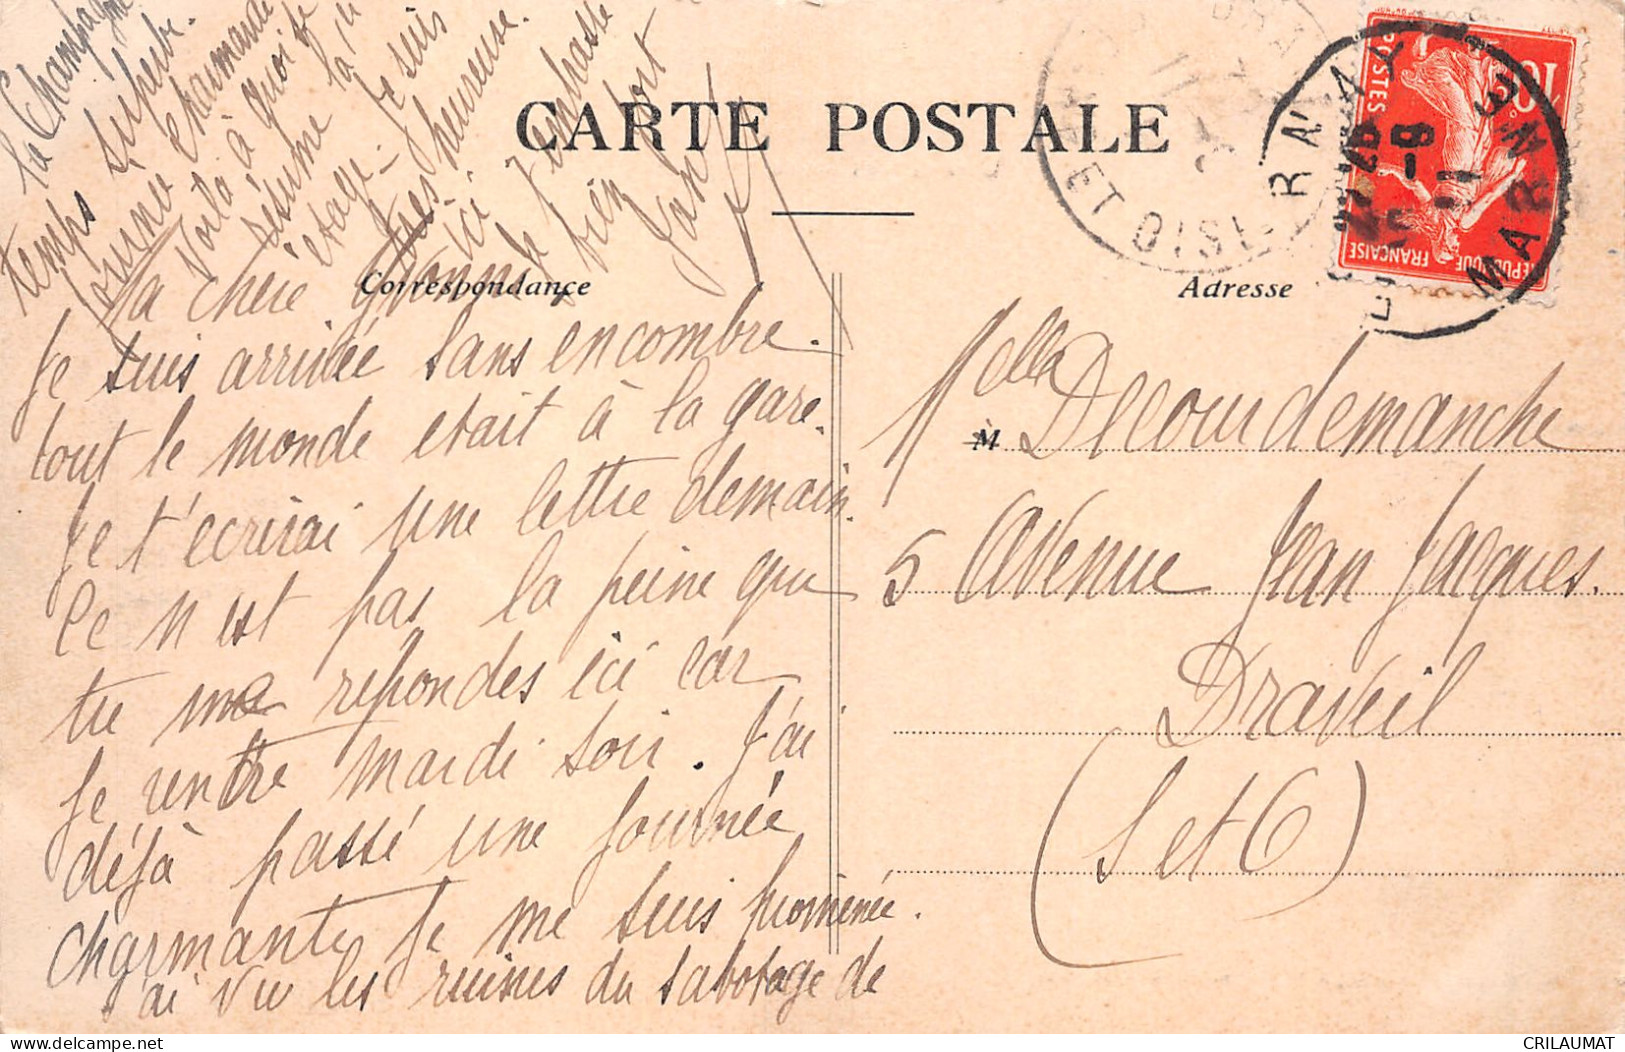 CARTE POSTALE
Correspondance
Adresse
Ma chère Yvonne
Je suis arrivée sans encombre.
tout le monde etait à la gare.
Je t'ecrirai une lettre demain.
Ce n'est pas la peine que
tu me repondes ici car
je rentre mardi soir. J'ai
déjà passé une journée
charmante je me suis promenée.
j'ai vu les ruines du sabotage de
la Champagne
temps superbe.
journée charmante
Voilà à quoi se
résume la
1ère étape. Je suis
très heureuse
ici. Je t'embrasse
bien fort
M
Melle Decourdemanche
5 Avenue Jean Jacques.
Draveil
(S et O)
EPERNAY
MARNE
ET OISE
10c
POSTES
REPUBLIQUE FRANCAISE
CRILAUMAT